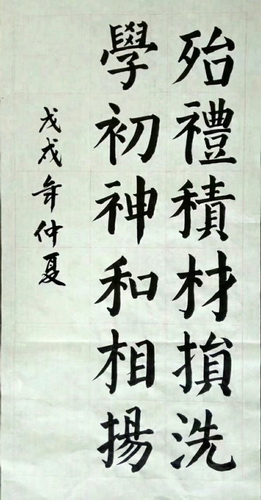 殆禮積材損洗
學初神和相揚
戊戌年仲夏